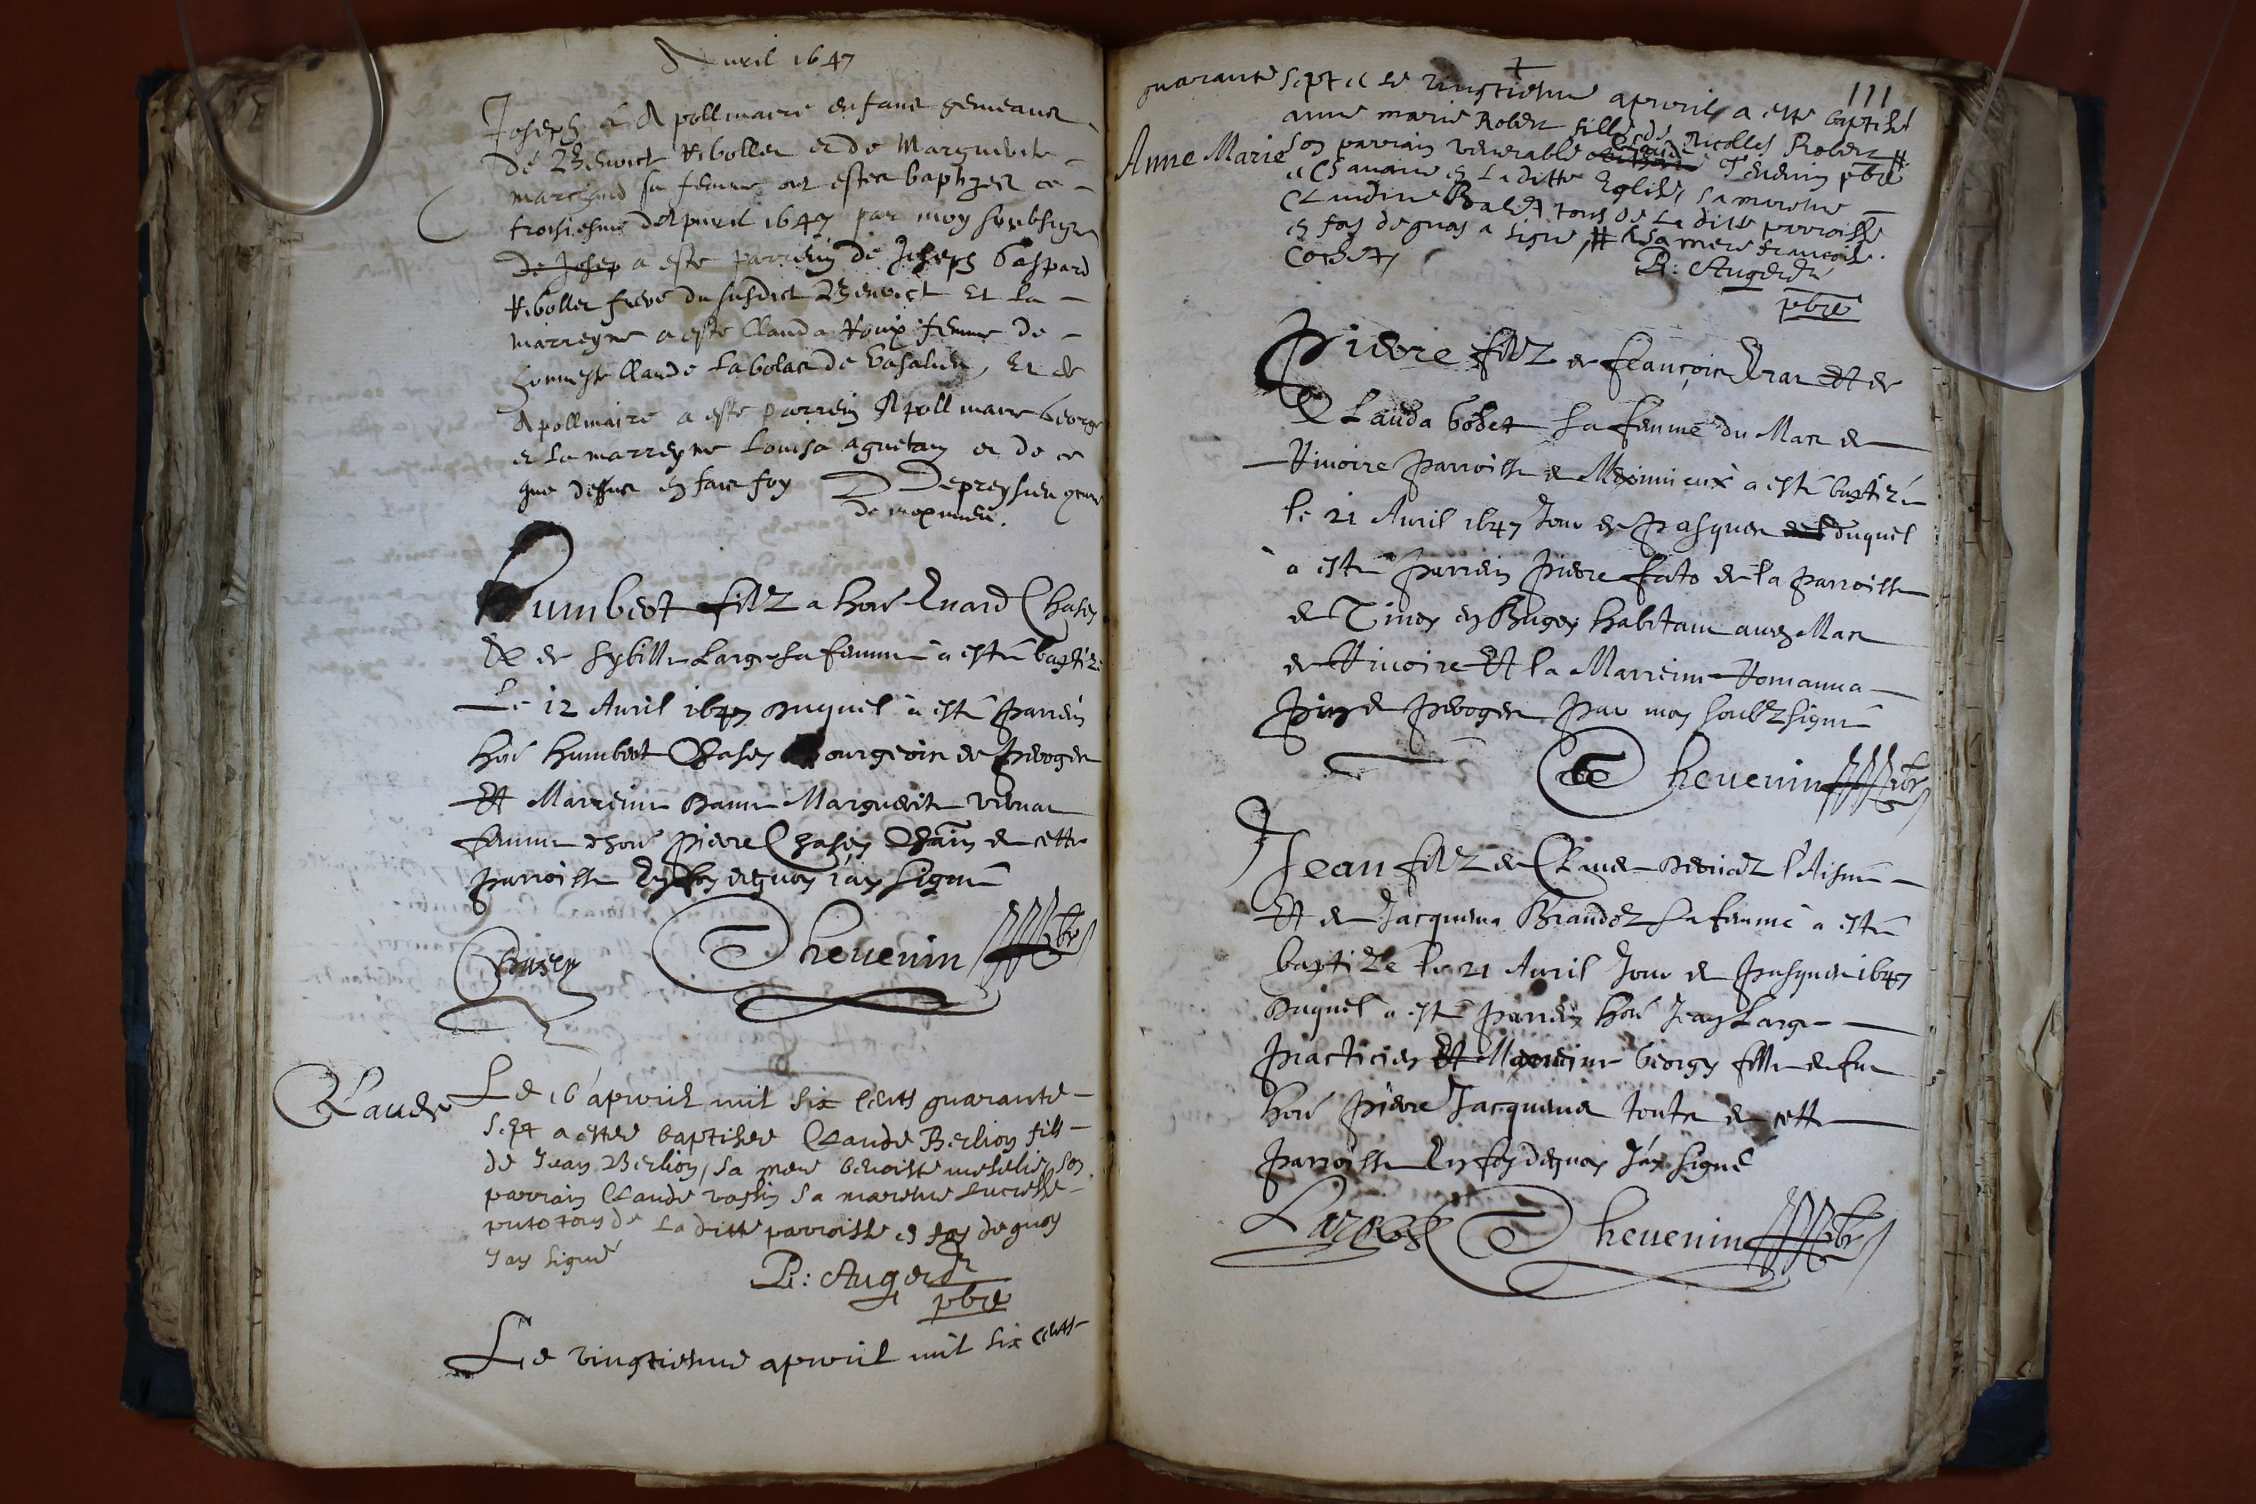 Auril 1647
Joseph & Apollinaire enfans gemeaux
de Benoict Riboller et de Marguerite
marchand sa femme ont estes baptizes ce
troisiesme d'Apuril 1647 par moy soubsigne
De Josep a este parrein de Joseph Gaspard
Riboller frere du susdict Benoict Et la
marreyne a este Clauda Roux femme de
honneste Claude Labolas de Et de
Apollinaire a este parrein Apollinaire George
et la marreyne Louisa aguetan et de ce
que dessus en fais foy Depreysieu
de meximieu.
Humbert filz a hon Euard Chasey
& de Sybille Large sa femme a esté baptizé
Le 12 Auril 1647 Duquel à esté Parrein
hon humbert Chasey Bourgeois de Peroges
Et Marreine Dame Marguerite
femme d'hon Pierre Chasey Chain de cette
Parroisse En foy dequoy i'ay signé
Chasey Theuenin pbr
Claude
Le 16 apuril mil six cents quarante
sept a estee baptisee Claude Berlion fill
de Jean Berlion, sa mere benoiste son
parrain Claude vassin sa mareine Lucresse
puto tous de La ditte parroisse en foy de quoy
Jay signé
P: Augerd
pbre
Le vingtiesme apuril mil six cents
111
quarante sept et le vingtiesme apuril a este baptisé
Anne Marie
anne marie Robert fille de Nicollas Robert #
son parrain venerable Claude Teuenin pbre
et Chanoine en La ditte Eglise sa mareine
Claudine Bales tous de La ditte parroisse
en foy de quoy a signe, # & sa mere francoise
Cochet
P: Augerd
pbre
Pierre filz de François Erar Et de
Clauda Godet sa femme du Mas de
Riuoire Parroisse de Meximieux a esté baptizé
le 21 Auril 1647 Jour de Pasques duquel
à esté Parrein Pierre fato de la Parroisse
de en Bugey habitant aud Mas
de Riuoire Et la Marreine Romanna
Pin de Peroges Par moy soubzsigné
Theuenin pbr
Jean filz de Claude l'Aisné
Et de Jacquema Brandez sa femme a esté
baptizé le 21 Auril Jour de Pasques 1647
Duquel a esté Parrein hon Jean Large
Practicien Et Marreine George fille de fu
hon Pierre Jacquemet toute de cette
Parroisse En foy dequoy J'ay signé
Large Theuenin pbr